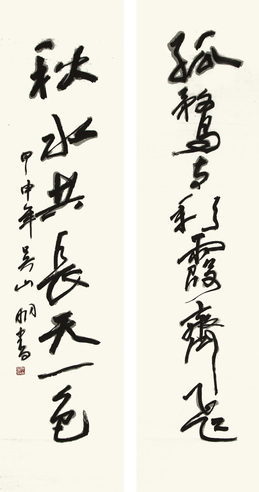 孤鶩与彩霞齊飛
秋水共長天一色
甲申年吴山明書